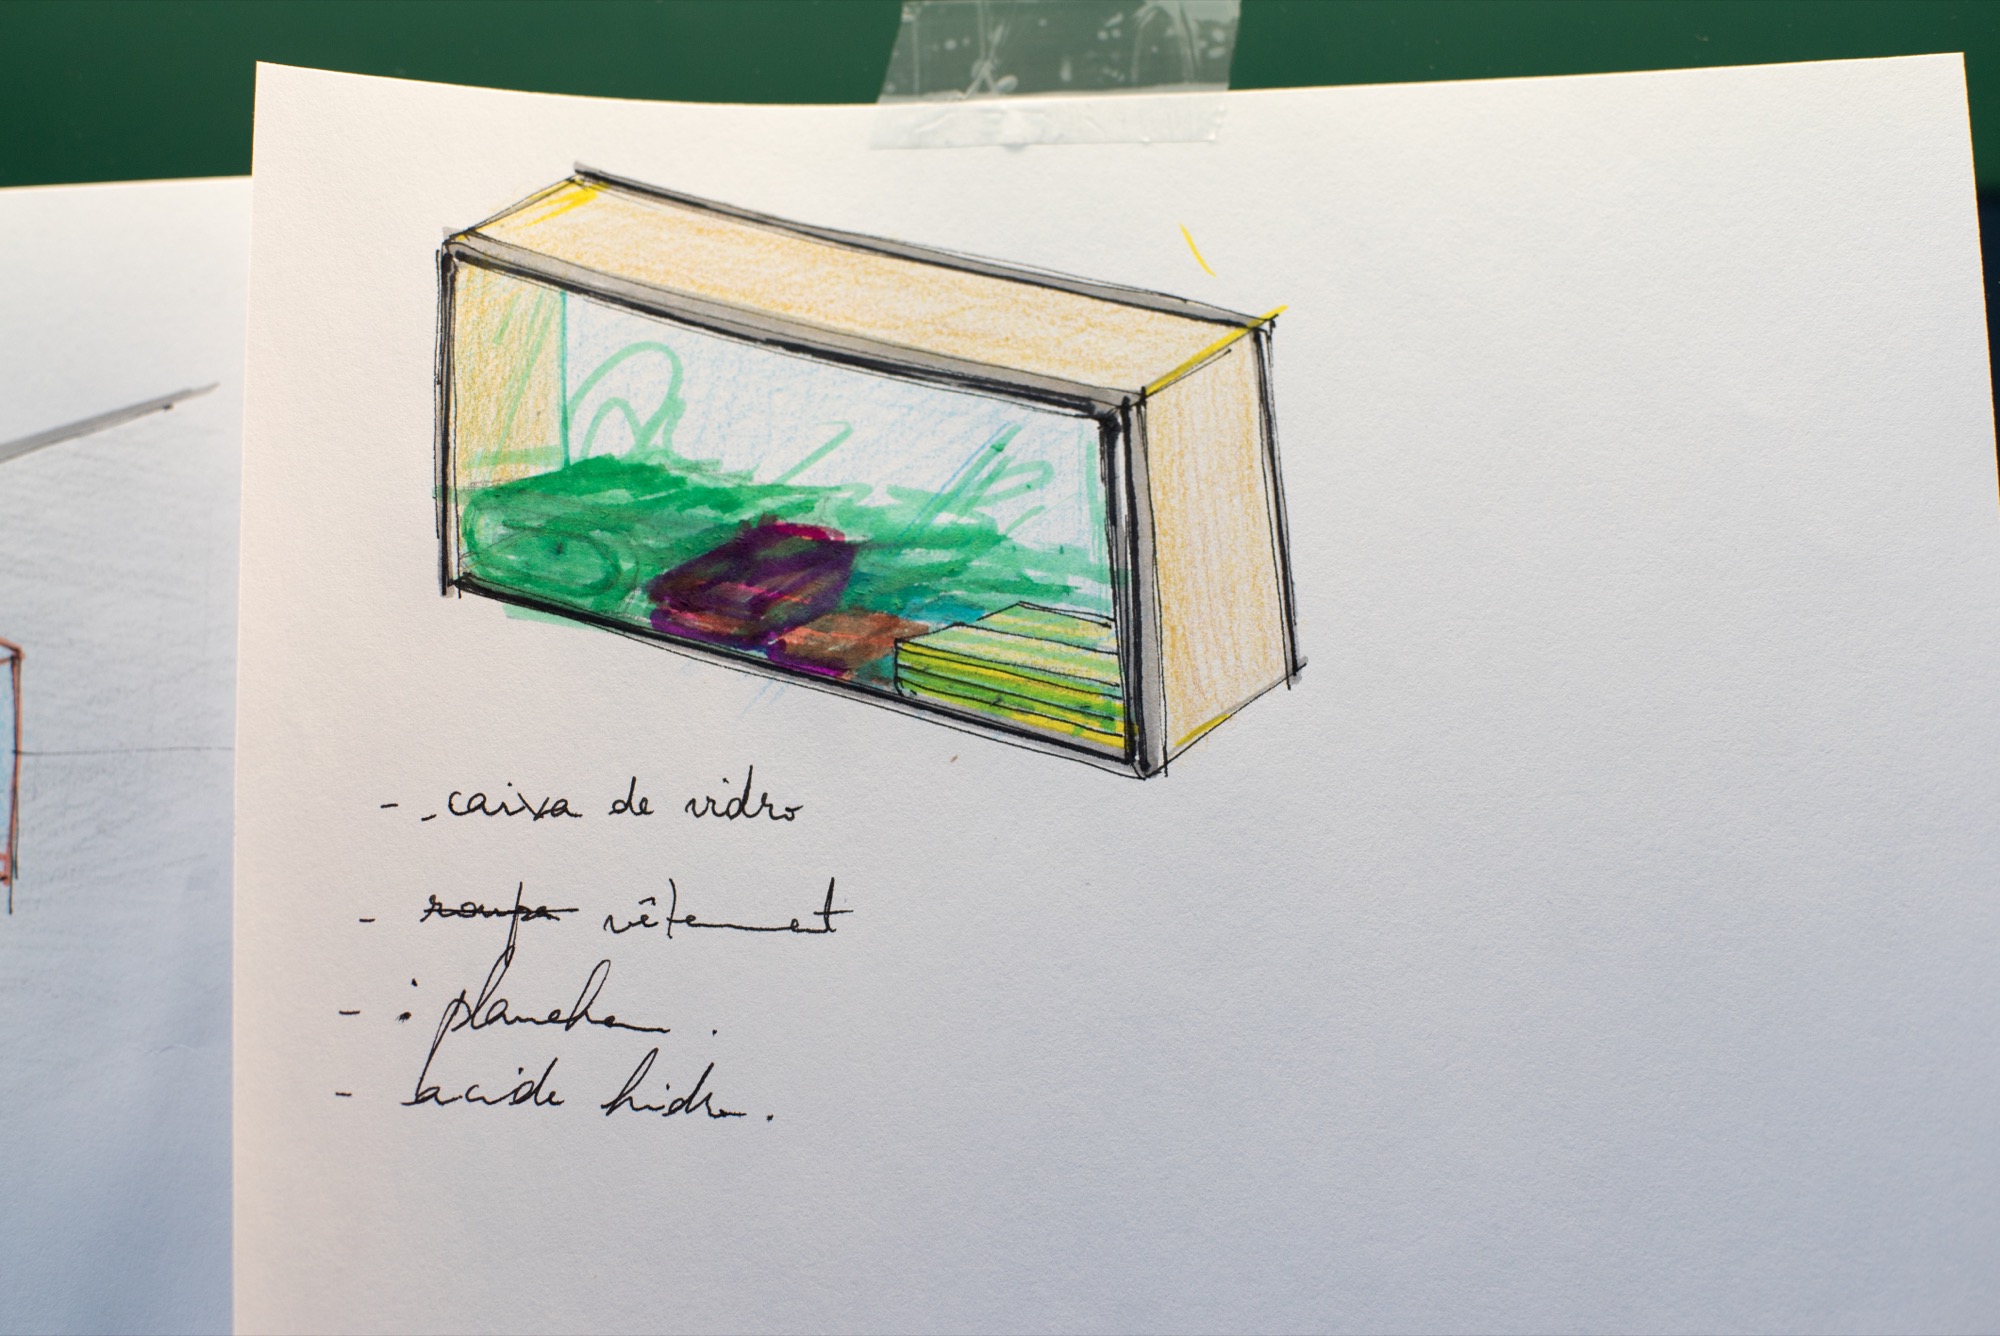 - caixa de vidro
- roupa vêtement
- : planches.
- acide hidro.